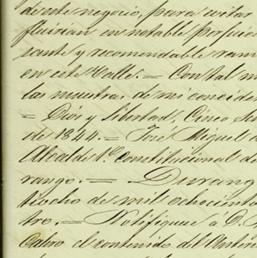 de este negocio, para evitar
fluirian en notable perjuicio
sante y recomendable ram
en este Valle.— Con tal m
las muestras de mi consider
— Dios y Libertad, Cinco Se
de 1844.— José Miguel
Alcalde 1º Constitucional de
rango.— Durang
tiocho de mil ochocient
tro.— Notifiquese á D.
el contenido del